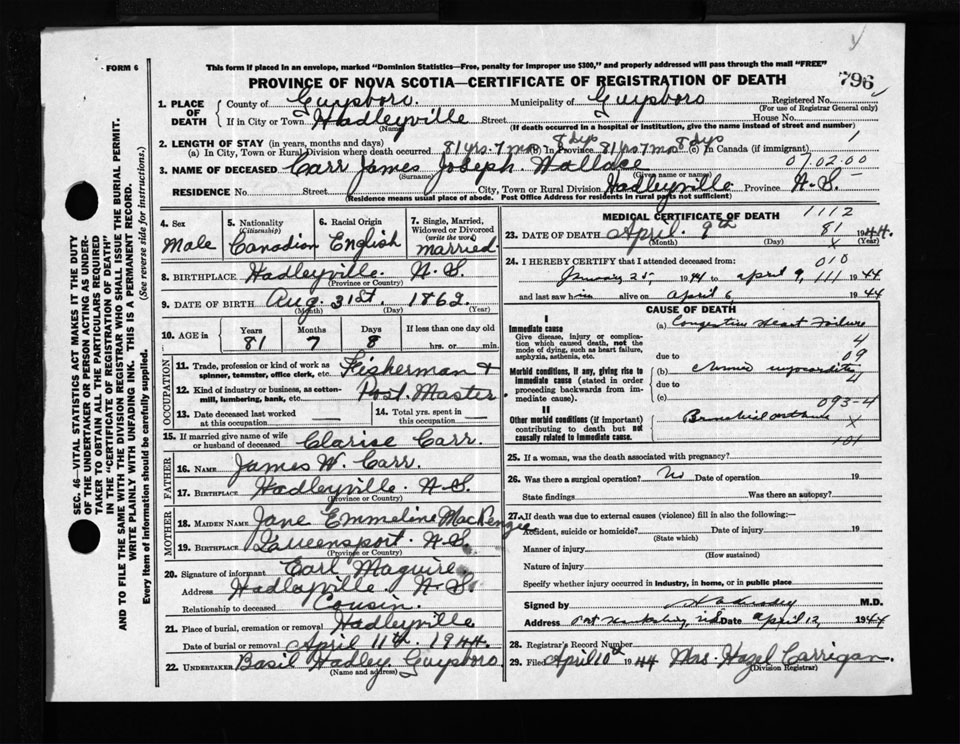 FORM 6
This form if placed in an envelope, marked "Dominion Statistics—Free, penalty for improper use $300," and properly addressed will pass through the mail "FREE"
PROVINCE OF NOVA SCOTIA—CERTIFICATE OF REGISTRATION OF DEATH
796
1. PLACE OF DEATH County of Guysboro. Municipality of Guysboro Registered No.
(For use of Registrar General only)
If in City or Town Hadleyville Street House No.
(Name) (If death occurred in a hospital or institution, give the name instead of street and number)
2. LENGTH OF STAY (in years, months and days)
(a) In City, Town or Rural Division where death occurred 81 yrs. 7 mos 8 dys (b) In Province 81 yrs. 7 mos 8 dys (c) In Canada (if immigrant)
07.02.00
3. NAME OF DECEASED Carr James Joseph Wallace
(Surname) (Given name or names)
RESIDENCE No. Street City, Town or Rural Division Hadleyville Province N.S.
(Residence means usual place of abode. Post Office Address for residents in rural parts not sufficient)
4. Sex
Male
5. Nationality
(Citizenship)
Canadian
6. Racial Origin
English
7. Single, Married, Widowed or Divorced
(write the word)
married
8. BIRTHPLACE Hadleyville N.S.
(Province or Country)
9. DATE OF BIRTH Aug. 31st. 1862
(Month) (Day) (Year)
10. AGE in
Years Months Days If less than one day old
81 7 8 hrs. or min.
OCCUPATION
11. Trade, profession or kind of work as spinner, teamster, office clerk, etc. Fisherman +
12. Kind of industry or business, as cotton-mill, lumbering, bank, etc. Post Master.
13. Date deceased last worked at this occupation
14. Total yrs. spent in this occupation
15. If married give name of wife or husband of deceased Clarise Carr.
FATHER
16. NAME James W. Carr.
17. BIRTHPLACE Hadleyville N.S.
(Province or Country)
MOTHER
18. MAIDEN NAME Jane Emmeline MacKenzie
19. BIRTHPLACE Queensport N.S.
(Province or Country)
20. Signature of informant Carl Maguire.
Address Hadleyville N.S.
Relationship to deceased Cousin.
21. Place of burial, cremation or removal Hadleyville
Date of burial or removal April 11th. 1944.
22. UNDERTAKER Basil Hadley Guysboro
(Name and address)
MEDICAL CERTIFICATE OF DEATH 1112
23. DATE OF DEATH April 9th 81 1944.
(Month) (Day) X (Year)
24. I HEREBY CERTIFY that I attended deceased from: 010
January 25, 1944 to April 9, 111 1944
and last saw him alive on April 6, 1944
CAUSE OF DEATH
I
Immediate cause
Give disease, injury or complication which caused death, not the mode of dying, such as heart failure, asphyxia, asthenia, etc.
(a) Congestive Heart Failure
4
due to 09
Morbid conditions, if any, giving rise to immediate cause (stated in order proceeding backwards from immediate cause)
(b) Chronic myocarditis
due to 4
(c) 093-4
II
Other morbid conditions (if important) contributing to death but not causally related to immediate cause.
Bronchial asthma
X
101
25. If a woman, was the death associated with pregnancy?
26. Was there a surgical operation? No Date of operation 19
State findings Was there an autopsy?
27. If death was due to external causes (violence) fill in also the following:—
Accident, suicide or homicide? Date of injury 19
(State which)
Manner of injury
(How sustained)
Nature of injury
Specify whether injury occurred in industry, in home, or in public place
Signed by M.D.
Address Port Hawkesbury, N.S. Date April 12, 1944
28. Registrar's Record Number
29. Filed April 10th 1944 Mrs. Hazel Carrigan.
(Division Registrar)
SEC. 46—VITAL STATISTICS ACT MAKES IT THE DUTY
OF THE UNDERTAKER OR PERSON ACTING AS UNDER-
TAKER TO OBTAIN ALL THE PARTICULARS REQUIRED
IN THE "CERTIFICATE OF REGISTRATION OF DEATH"
AND TO FILE THE SAME WITH THE DIVISION REGISTRAR WHO SHALL ISSUE THE BURIAL PERMIT.
WRITE PLAINLY WITH UNFADING INK. THIS IS A PERMANENT RECORD.
Every item of Information should be carefully supplied. (See reverse side for instructions.)